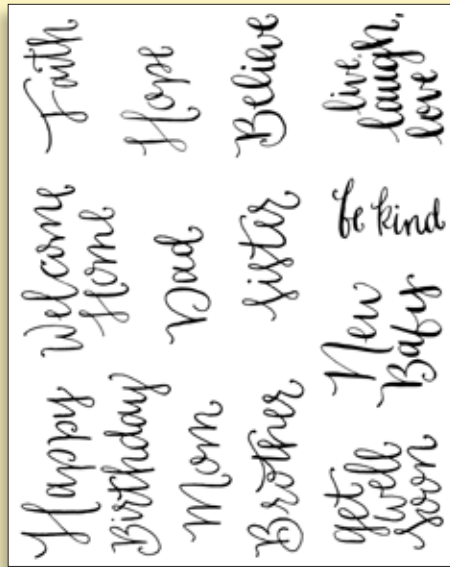 Happy
Birthday
Welcome
Home
Faith
Mom
Dad
Hope
Brother
sister
Believe
get
well
soon
New
Baby
be kind
live.
laugh.
love